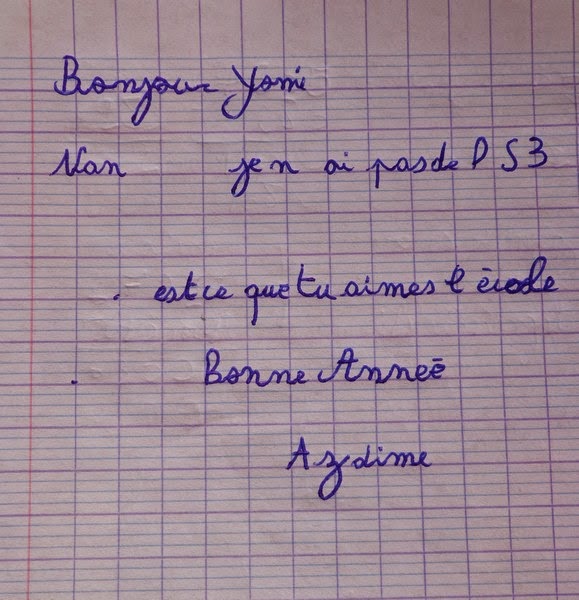 Bonjour Yomi
Nan je n ai pas de DS3
. est ce que tu aimes l école
. Bonne Anneē
Azdime